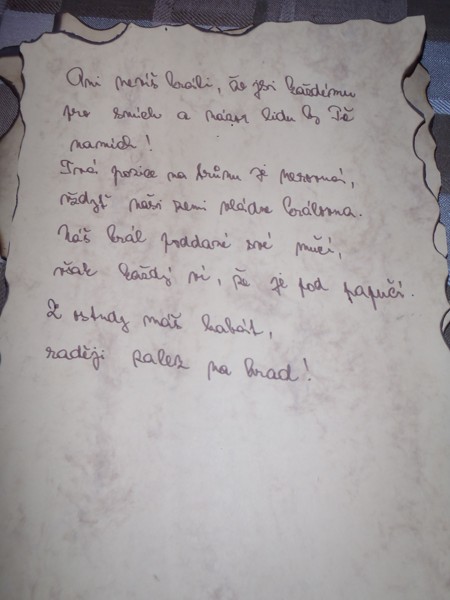 Ani nevíš králi, že jsi každému
pro smích a názor lidu by Tě
namích!
Tvá pozice na trůnu je nerovná,
vždyť naší zemi vládne královna.
Náš král poddané své mučí,
však každý ví, že je pod papučí.
Z ostudy máš kabát,
raději zalez na hrad!